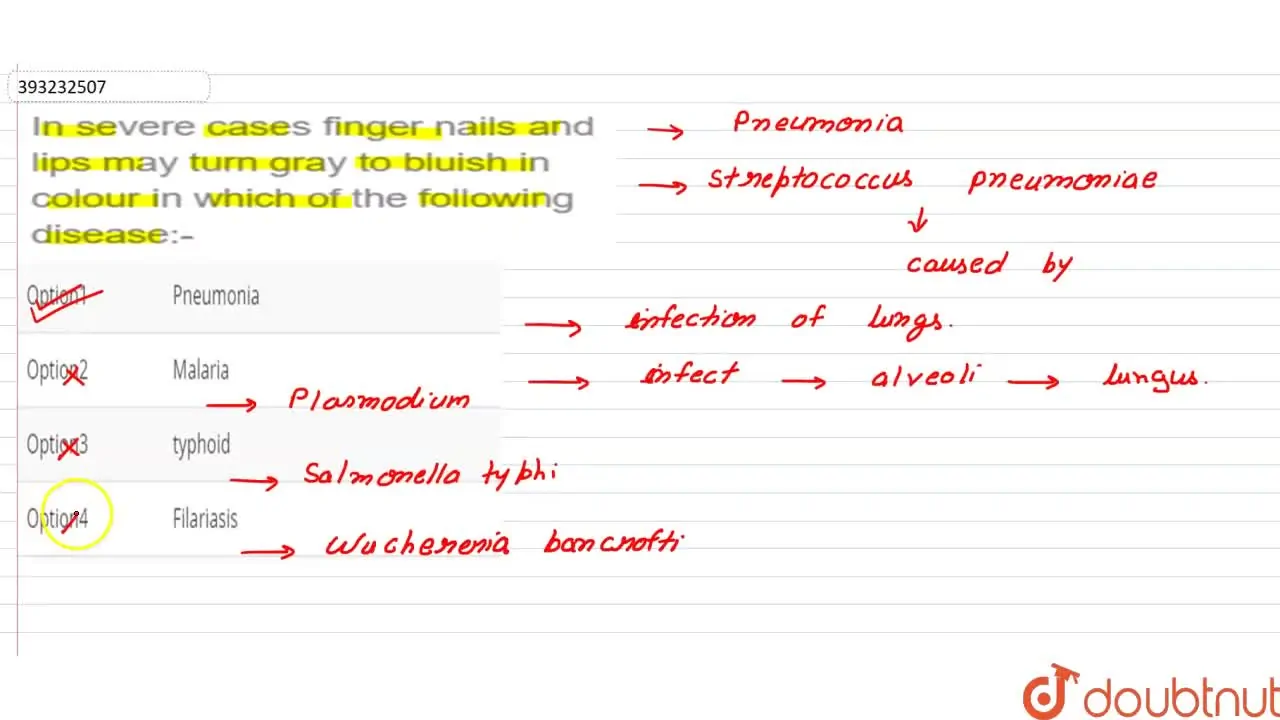 393232507
In severe cases finger nails and
lips may turn gray to bluish in
colour in which of the following
disease:-
→ Pneumonia
→ Streptococcus pneumoniae
↓
caused by
Option1 Pneumonia
→ infection of lungs.
Option2 Malaria
→ infect → alveoli → lungus.
→ Plasmodium
Option3 typhoid
→ Salmonella typhi
Option4 Filariasis
→ Wuchereria bancrofti
doubtnut